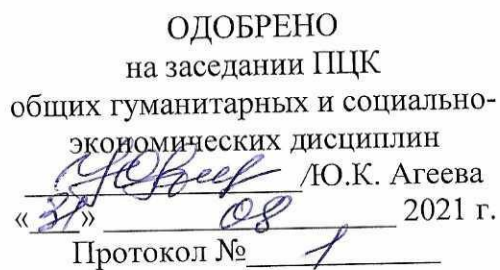 ОДОБРЕНО
на заседании ПЦК
общих гуманитарных и социально-
экономических дисциплин
/Ю.К. Агеева
«31» 08 2021 г.
Протокол № 1